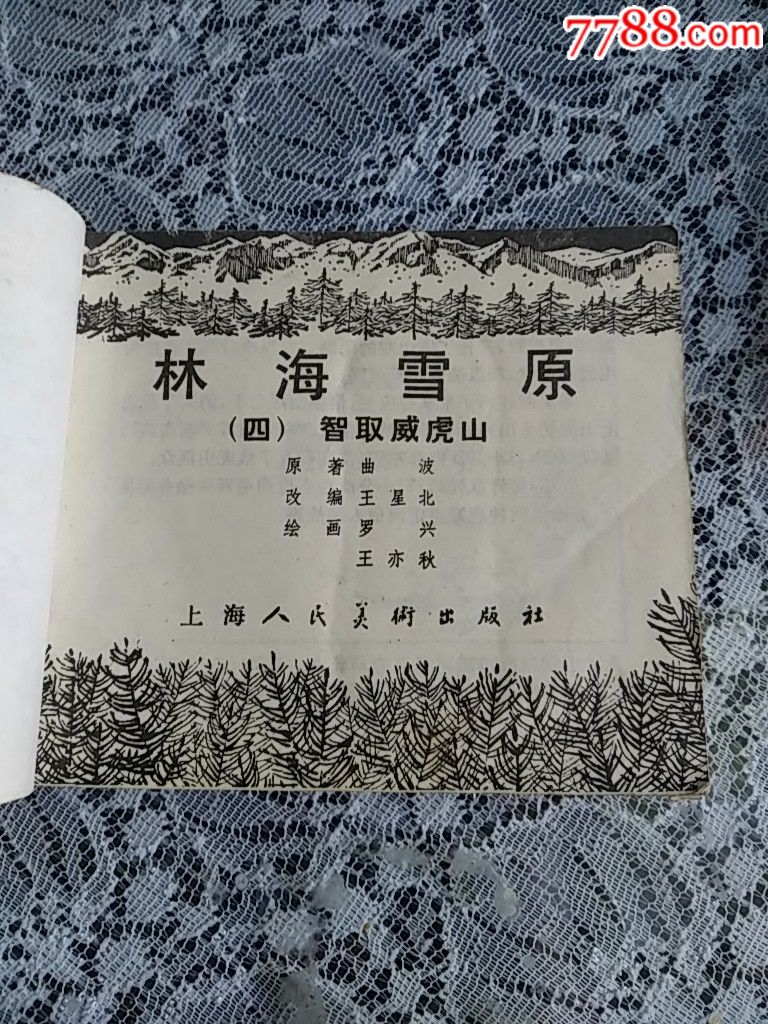 7788.com
林海雪原
(四) 智取威虎山
原著曲波
改编王星北
绘画罗兴
王亦秋
上海人民美術出版社